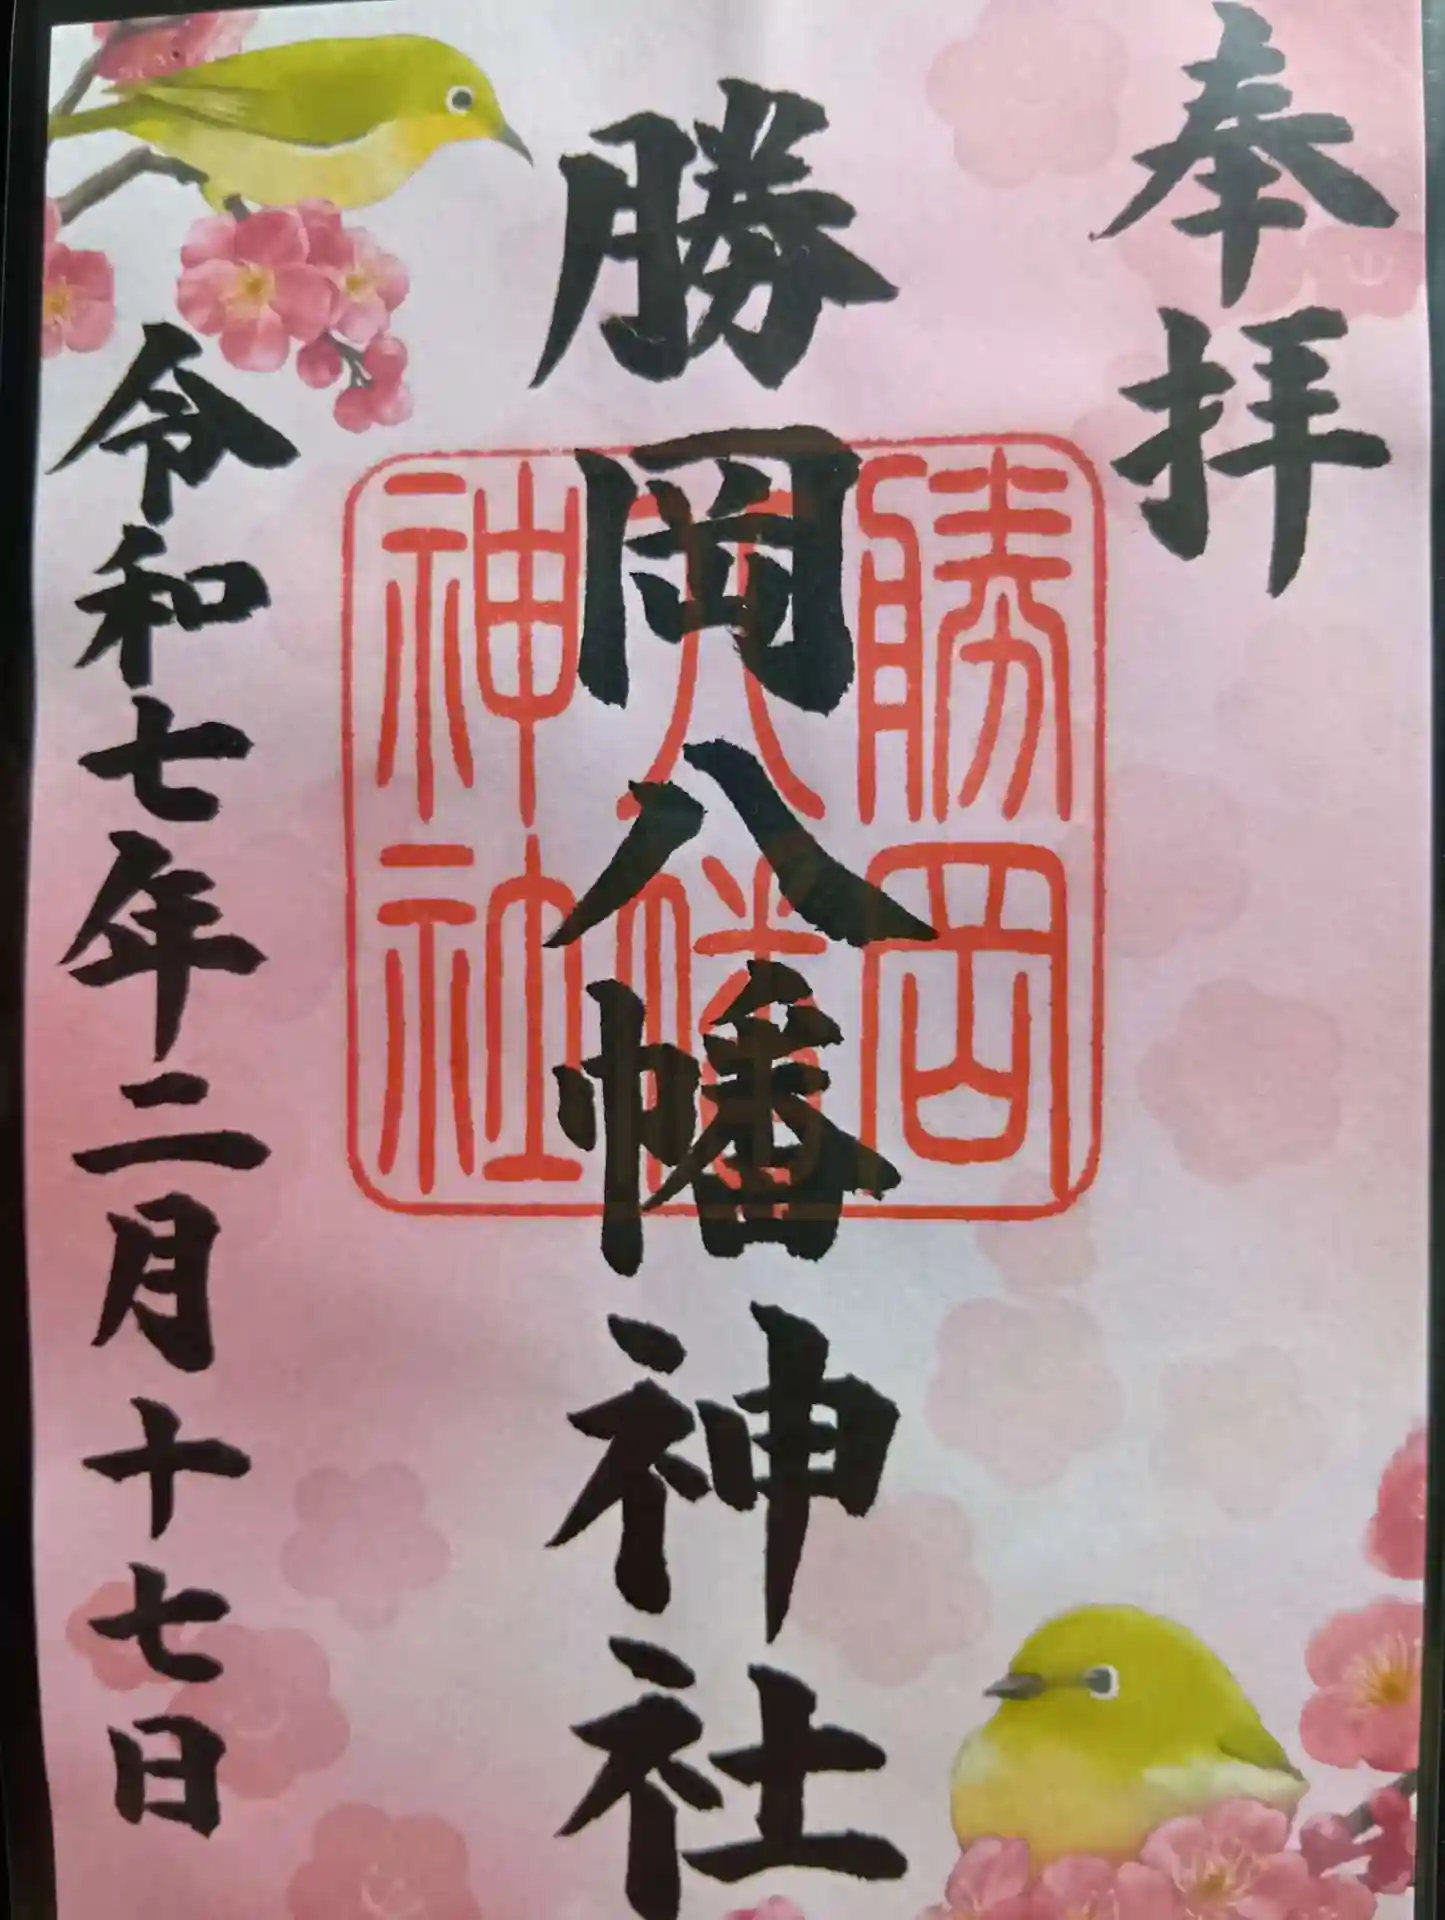 奉拝
勝岡八幡神社
勝岡
八幡
神社
令和七年二月十七日